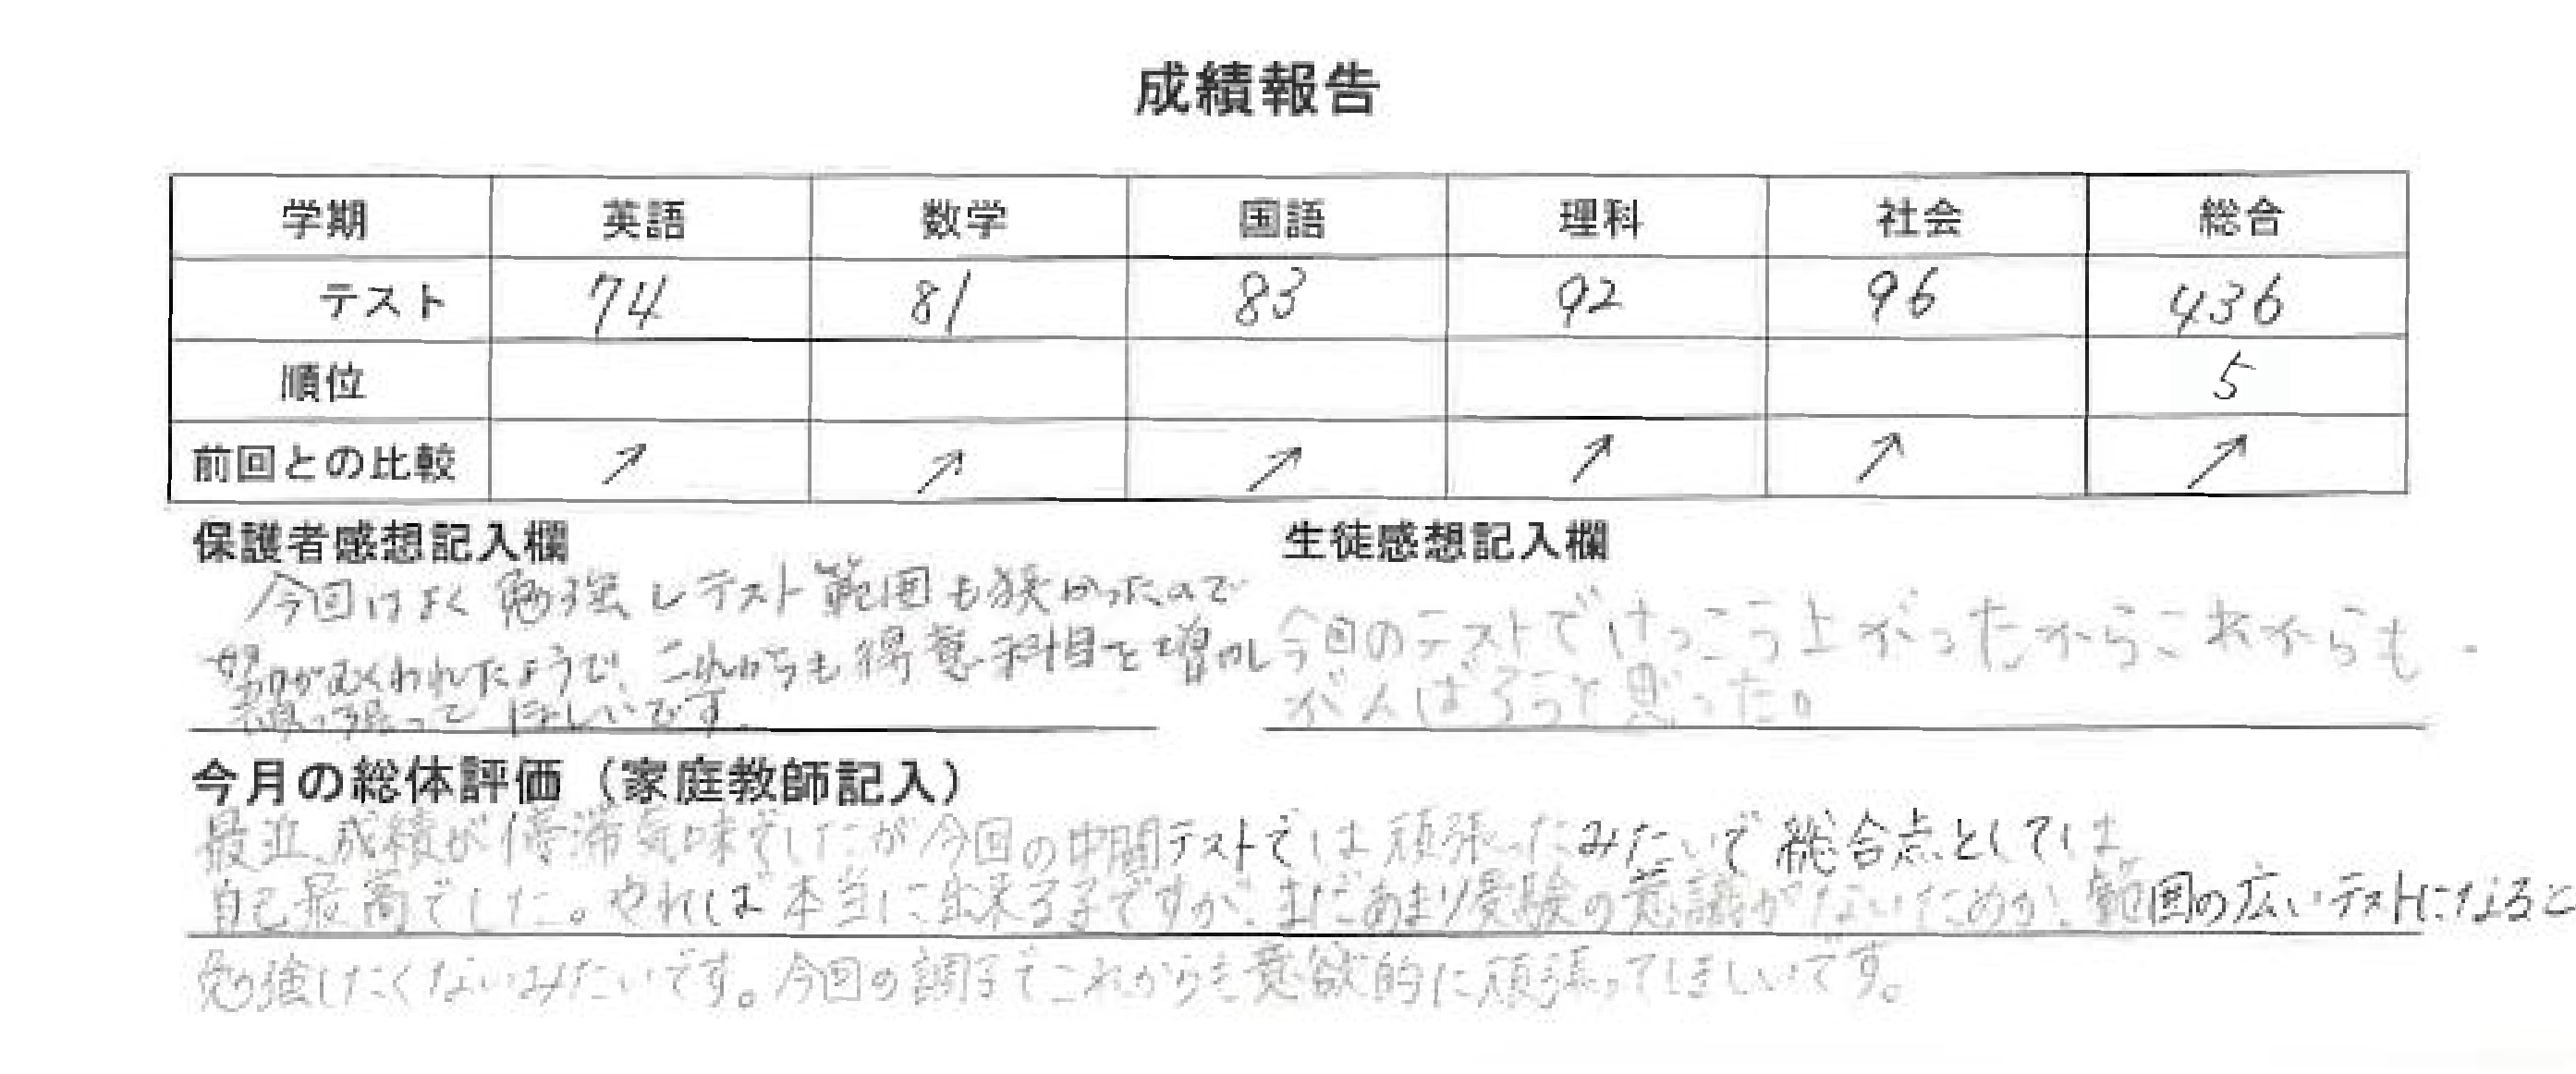 成績報告
学期 英語 数学 国語 理科 社会 総合
テスト 74 81 83 92 96 436
順位 5
前回との比較 ↗ ↗ ↗ ↗ ↗ ↗
保護者感想記入欄
今回はよく勉強しテスト範囲も狭かったので
努力がむくわれたようで、これからも得意科目を増やし
頑張って ほしいです。
生徒感想記入欄
今回のテストでけっこう上がったからこれからも
がんばろうと思った。
今月の総体評価（家庭教師記入）
最近、成績が停滞気味でしたが今回の中間テストでは頑張ったみたいで総合点としては
自己最高でした。やれば本当に出来る子ですが、まだあまり受験の意識がないためか、範囲の広いテストになると
勉強したくないみたいです。今回の調子でこれからも意欲的に頑張ってほしいです。